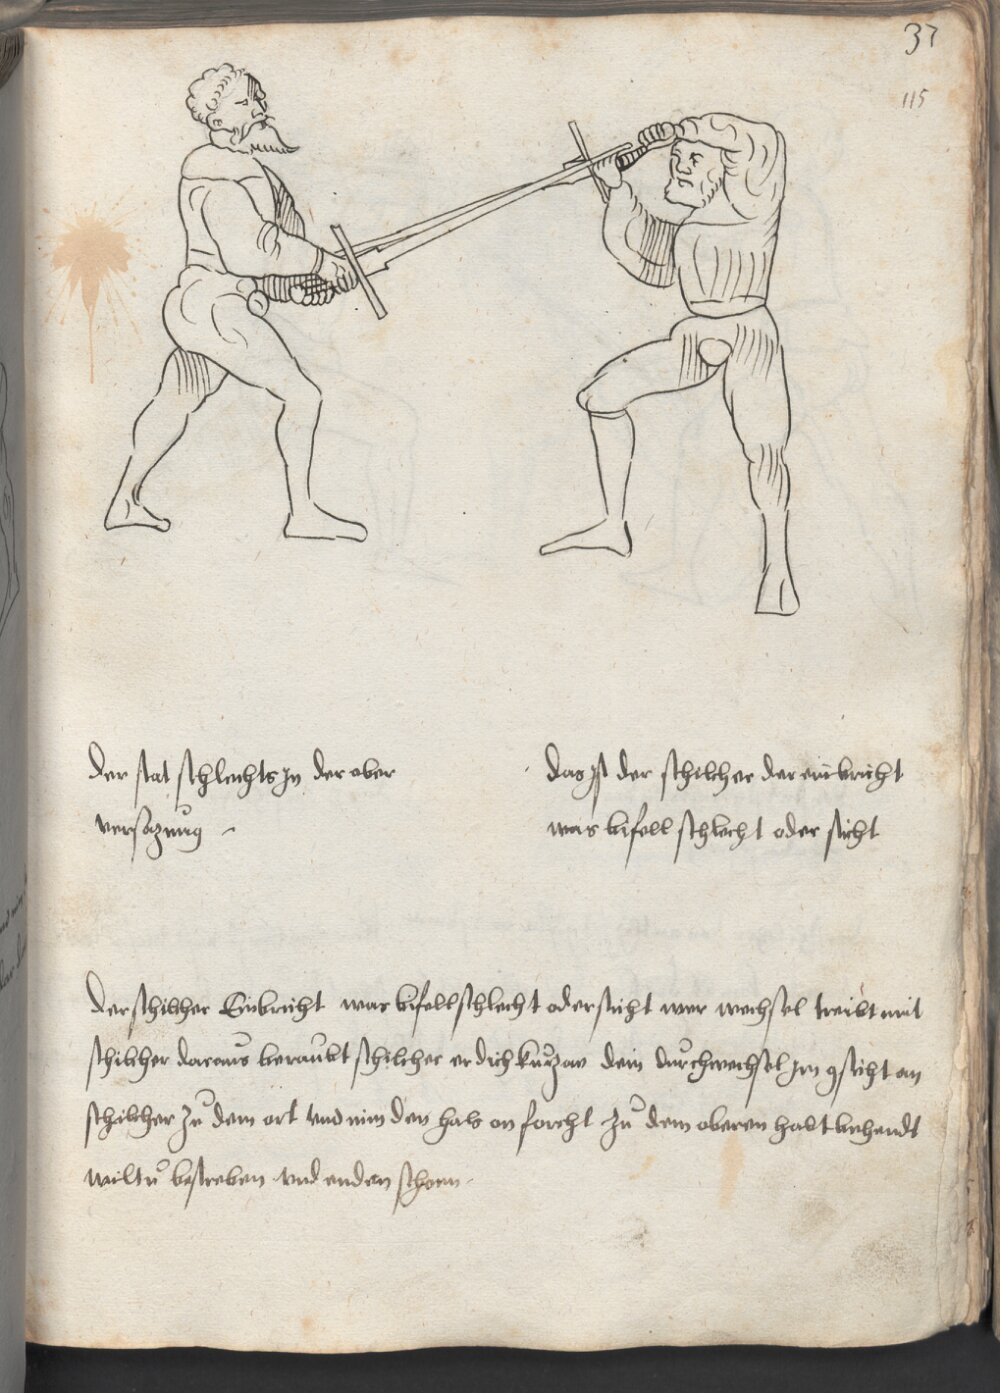 37
115
der stat schlechts Jn der ober
versazung
das Jst der schilcher der ein bricht
was biffell schlecht oder sticht
Der schilcher Einbricht was biffell schlecht oder sticht wer wechsel treibt mit
schilcher daraus beraubt schilcher er dich kurz an dem durchwechsel Jm gsicht an
schilcher Zu dem ort und nim den hals on forcht Zu dem oberen halt behendt
wiltu bestreben und enden schonn